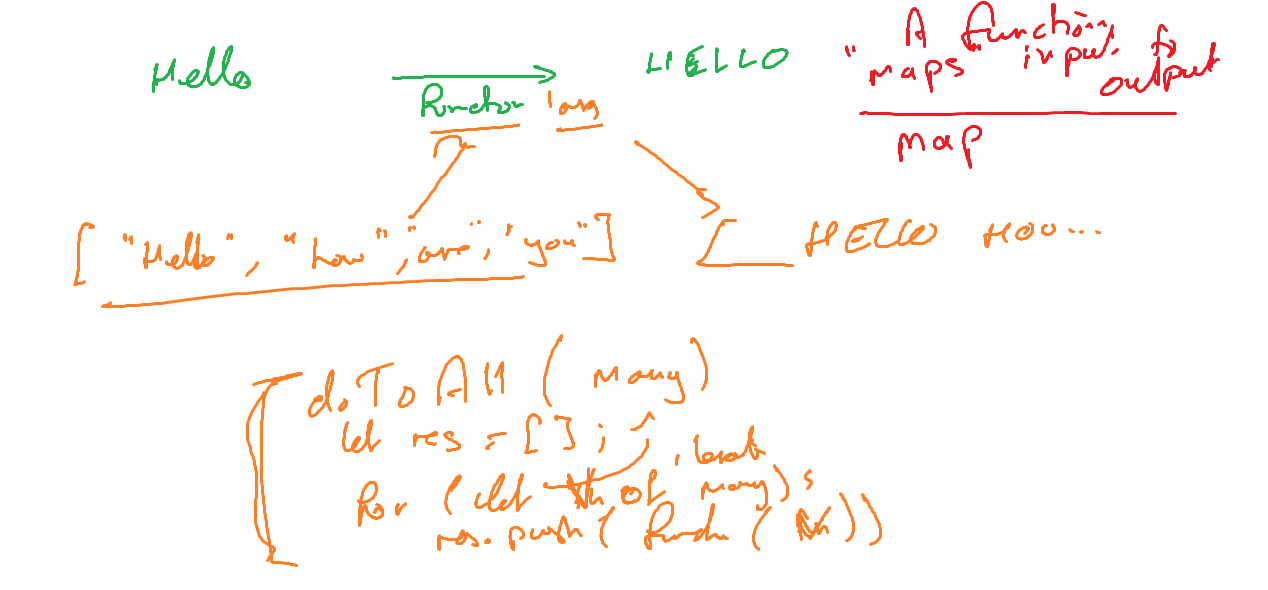 Hello
HELLO
function
"A function
"maps" input to
output
map
["Hello", "how", "are", "you"]
[ HELLO HOO...
doToAll (many)
let res = [];
for (let of many)
res.push(